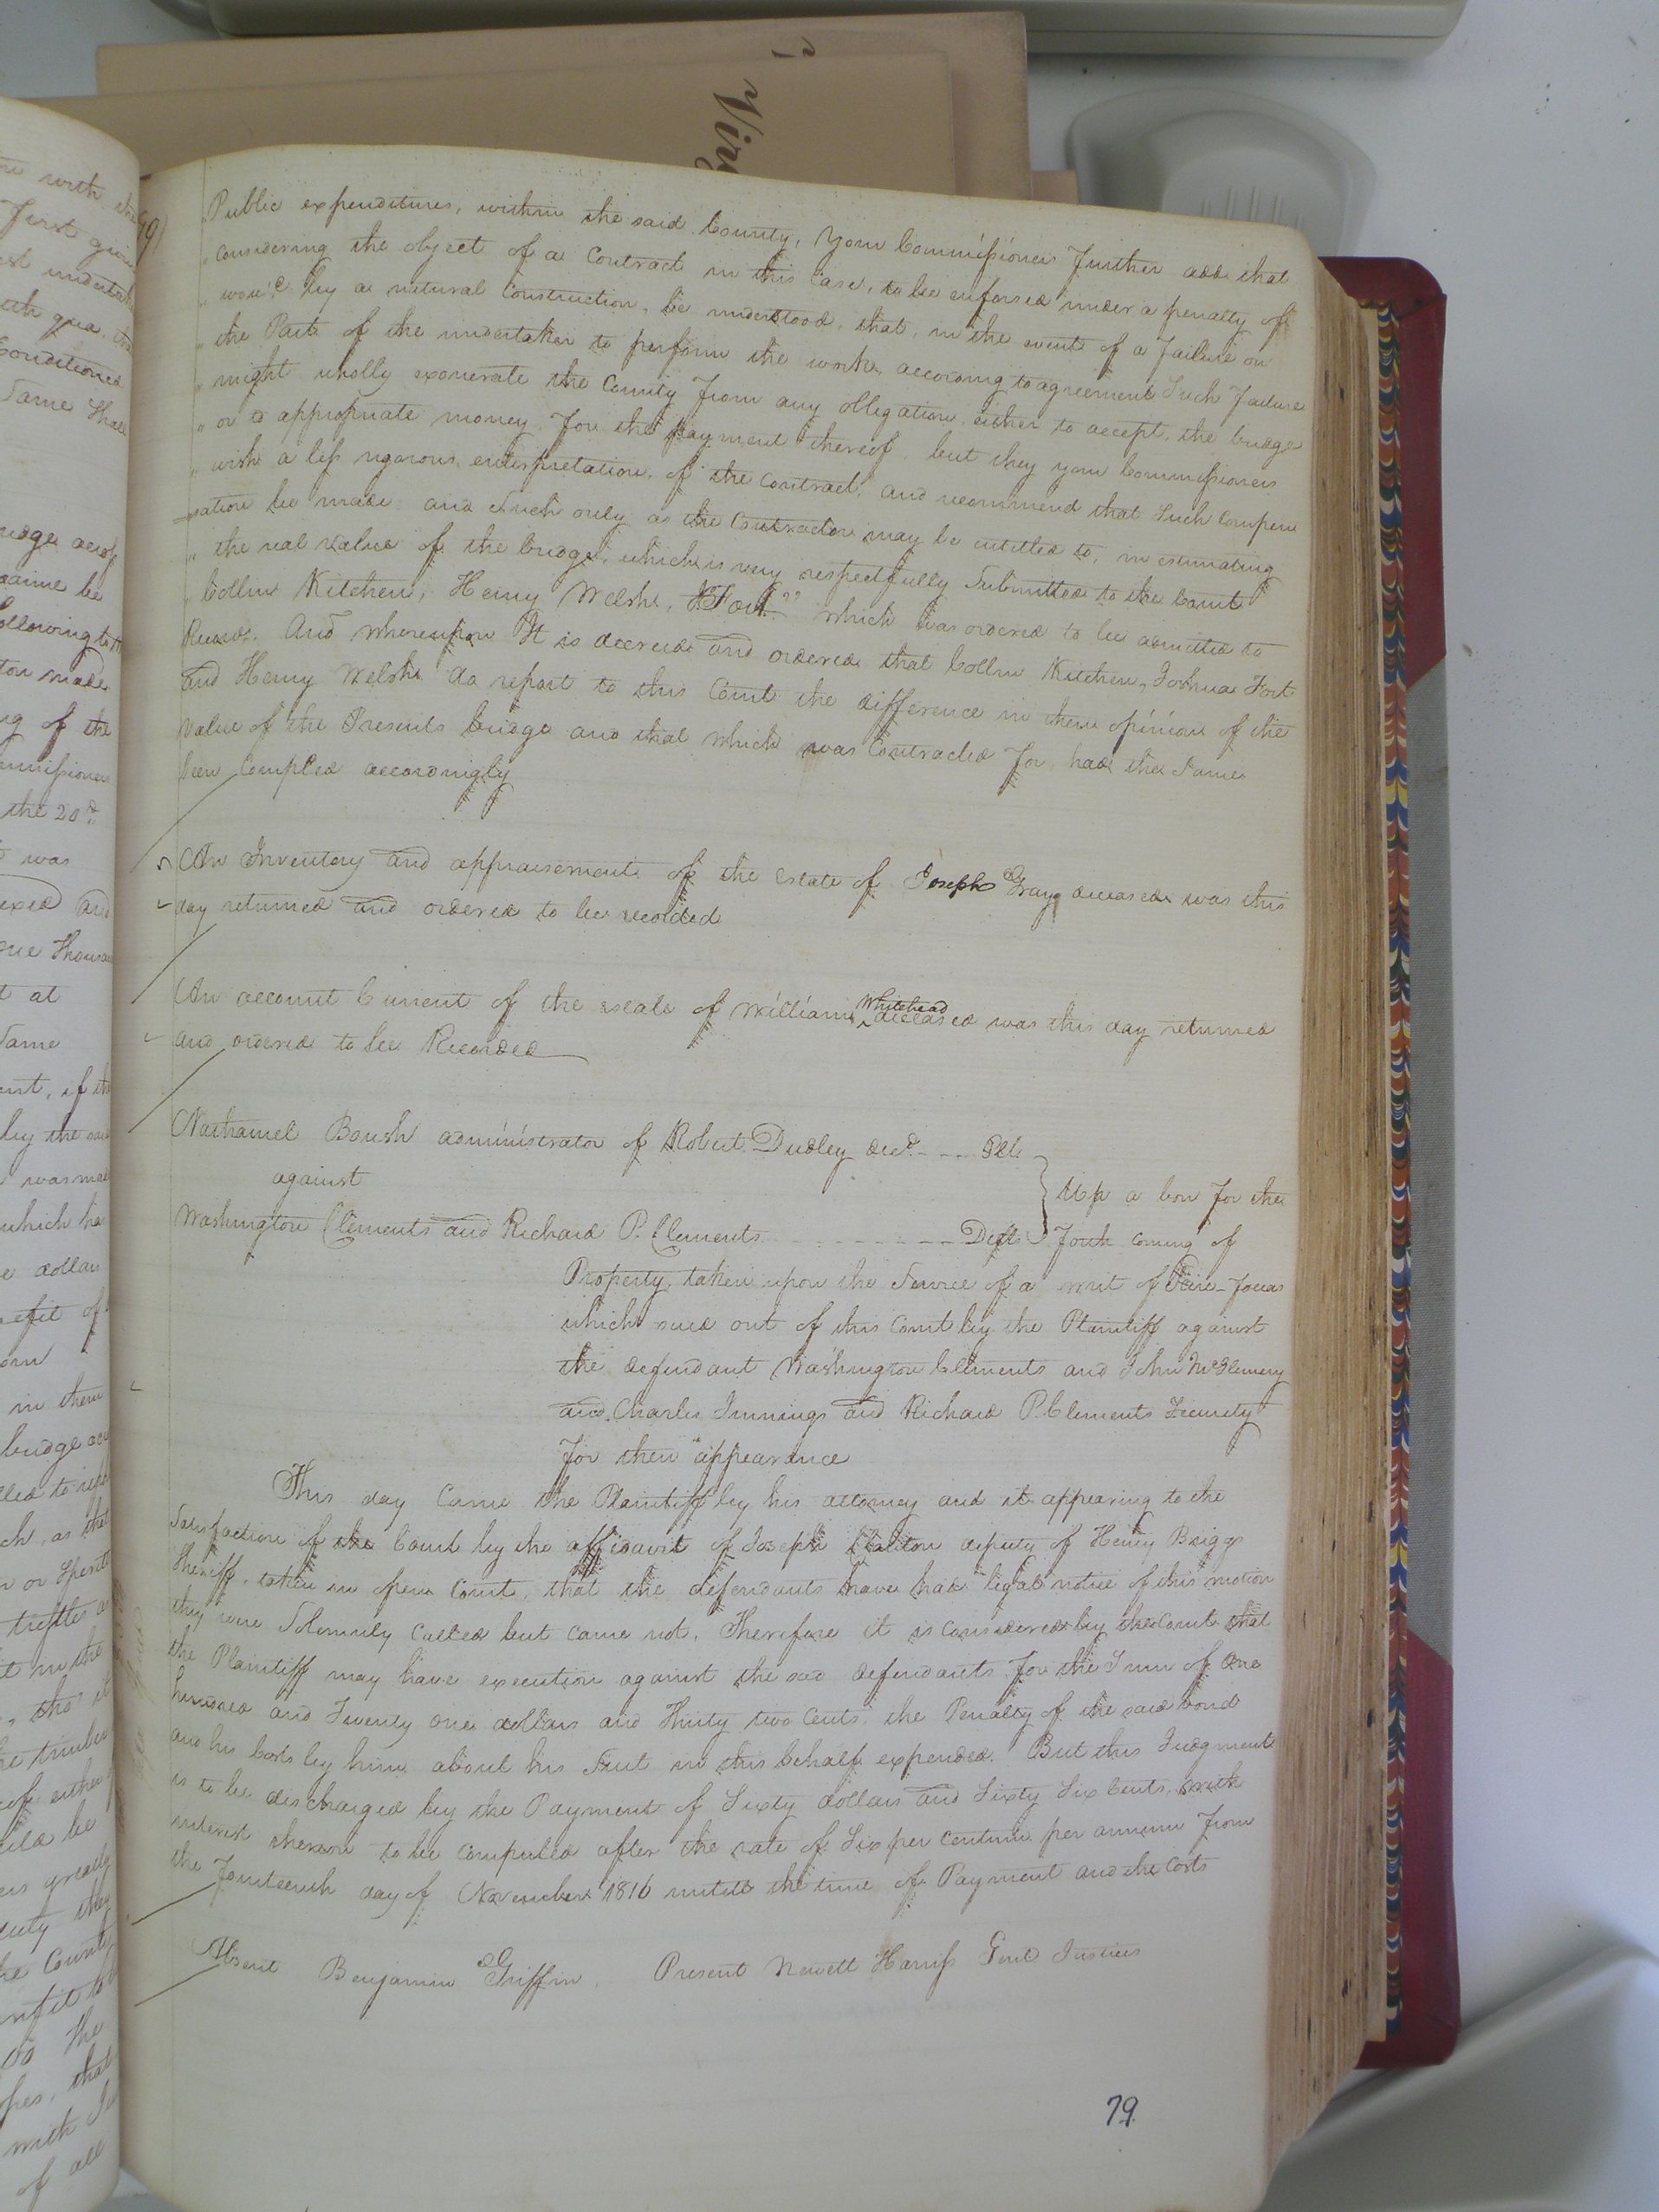 Virg
79)
Public expenditures, within the said County, your Commissioners further add that
" considering the object of a Contract in this Case, to be enforsed under a penalty of
" wou'd by a natural Construction, be understood, that, in the event of a failure on
" the Part of the undertaker to perform the work, according to agreement Such failure
" might wholly exonerate the County from any obligation, either to accept, the bridge
" or to appropriate money. For the payment thereof, but they your Commissioners
" wish a less rigorous, enterpretation, of the Contract, and recommend that Such Compen
=sation be made and Such only as the Contractor may be entitled to, in estimating
" the real value of the bridge, which is very respectfully Submitted to the Court
" Collin Kitchen, Henry Welsh, J Fort" which was ordered to be admitted to
Record. And whereupon It is decreed and ordered that Collin Kitchen, Joshua Fort
and Henry Welsh do report to this Court the difference in their opinion of the
value of the Present bridge and that which was Contracted For, had the Same
been Compled accordingly
An Inventory and appraisement of the estate of Joseph Gray deceased was this
day returned and ordered to be recorded
An account Current of the estate of William Whitehead deceased was this day returned
and ordered to be Recorded
Nathaniel Boush administrator of Robert Dudley decd. - - - Plt.
against
Up a bon for the
Washington Clements and Richard P. Clements - - - - - - - - - Defts Forth coming of
Property taken upon the Service of a writ of Fire-facias
which sued out of this Court by the Plaintiff against
the defendant Washington Clements and John McGlemery
and Charles Innings and Richard P. Clements Security
for their appearance
This day Came the Plaintiff by his attorney and it appearing to the
Satisfaction of the Court by the affidavit of Joseph Claiton deputy of Henry Briggs
Sheriff, taken in open Court, that the defendants have had legal notice of this motion
they were Solemnly Called but came not, Therefore it is Considered by the Court that
the Plaintiff may have execution against the said defendants for the Sum of One
hundred and Twenty one dollars and Thirty two Cents. the Penalty of the said bond
and his Costs by him about his Suit in this behalf expended. But this Judgment
is to be discharged by the Payment of Sixty dollars and Sixty Six Cents, with
interest thereon to be Computed after the rate of Six per Centum per annum From
the Fourteenth day of November 1816 untill the time of Payment and the Costs
Absent Benjamin Griffin. Present Newett Harriss Gent Justices
79